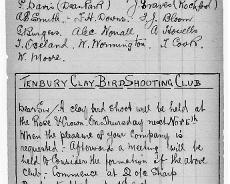 P Davis (Dean Park) J Graves (Rockford)
A E Smith - J. H. Downs. T. J. Bloom
C Burgess. Alec Nonall. A Howells
J. Copeland. W. Wormington. T Cook.
W. Moore.
TENBURY CLAY BIRD SHOOTING CLUB
Dear Sir / A clay bird shoot will be held at
the Rose & Crown On Thursday next Nov
When the pleasure of your Company is
requested. Afterward a meeting will be
held to Consider the formation of the above
club. Commence at 2 o/c Sharp